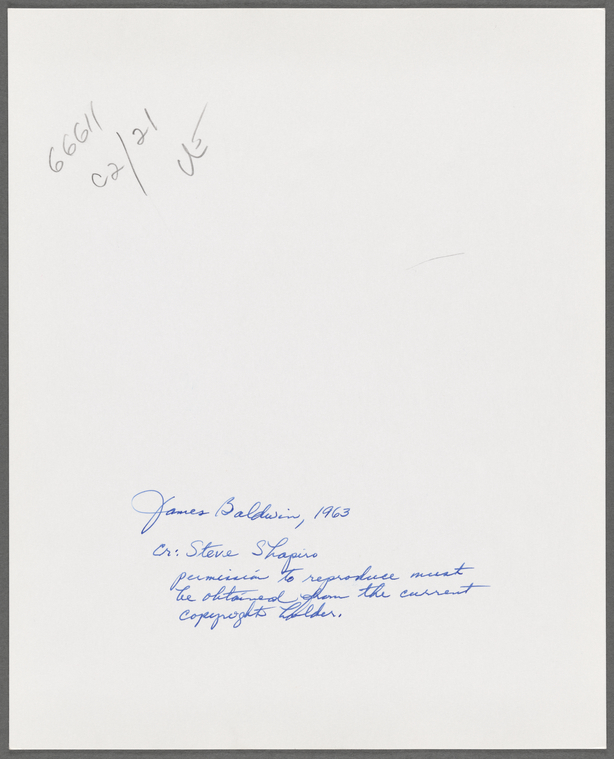 66611
C2/21
James Baldwin, 1963
Cr: Steve Shapiro
permission to reproduce must
be obtained from the current
copyright holder.